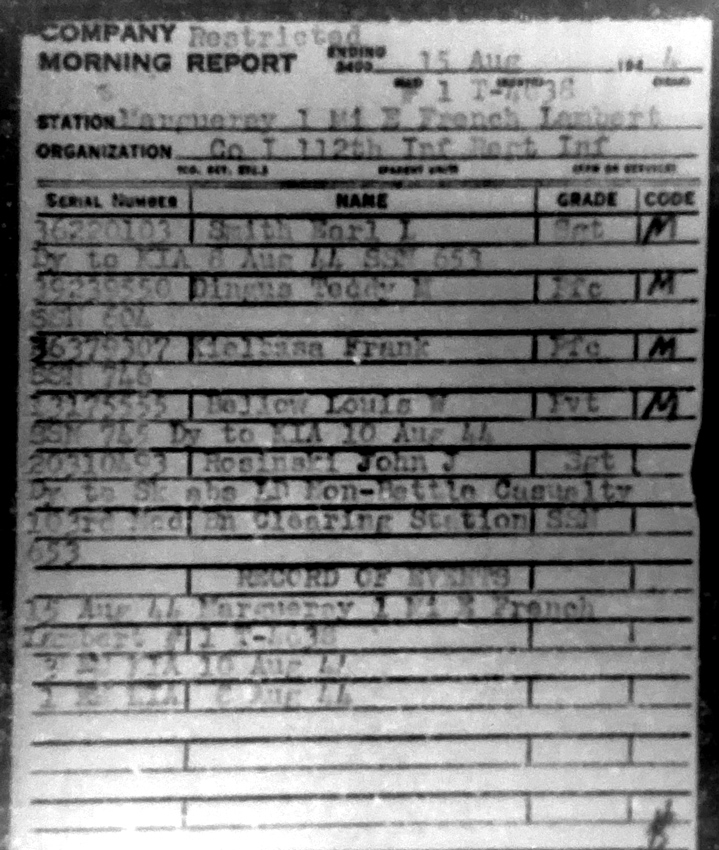 COMPANY Restricted
MORNING REPORT ENDING 2400 15 Aug 194 4
# 1 T-4038
STATION Margueray 1 Mi E French Lambert
ORGANIZATION Co I 112th Inf Regt Inf
SERIAL NUMBER NAME GRADE CODE
36220103 Smith Earl L Sgt M
Dy to KIA 8 Aug 44 SSN 653
39239550 Dingus Teddy M Pfc M
SSN 604
36379507 Kielbasa Frank Pfc M
SSN 746
Louis W Pvt M
SSN 745 Dy to KIA 10 Aug 44
20310493 Rosinski John J Sgt
Dy to Sk abs LD Non-Battle Casualty
103rd Med Bn Clearing Station SSN
653
RECORD OF EVENTS
15 Aug 44 Margueray 1 Mi E French
Lambert # 1 T-4038
3 EM KIA 10 Aug 44
1 EM KIA 8 Aug 44